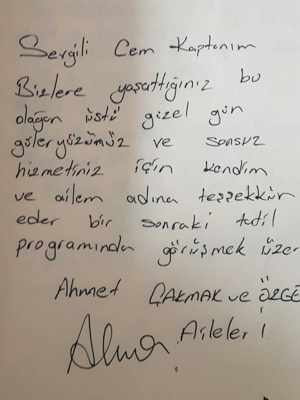 Sevgili Cem Kaptanım
Bizlere yaşattığınız bu
olağan üstü güzel gün
güleryüzünüz ve sonsuz
hizmetiniz için kendim
ve ailem adına teşşekkür
eder bir sonraki tatil
programında görüşmek üzer
Ahmet ÇAKMAK ve ÖZGE
Aileleri